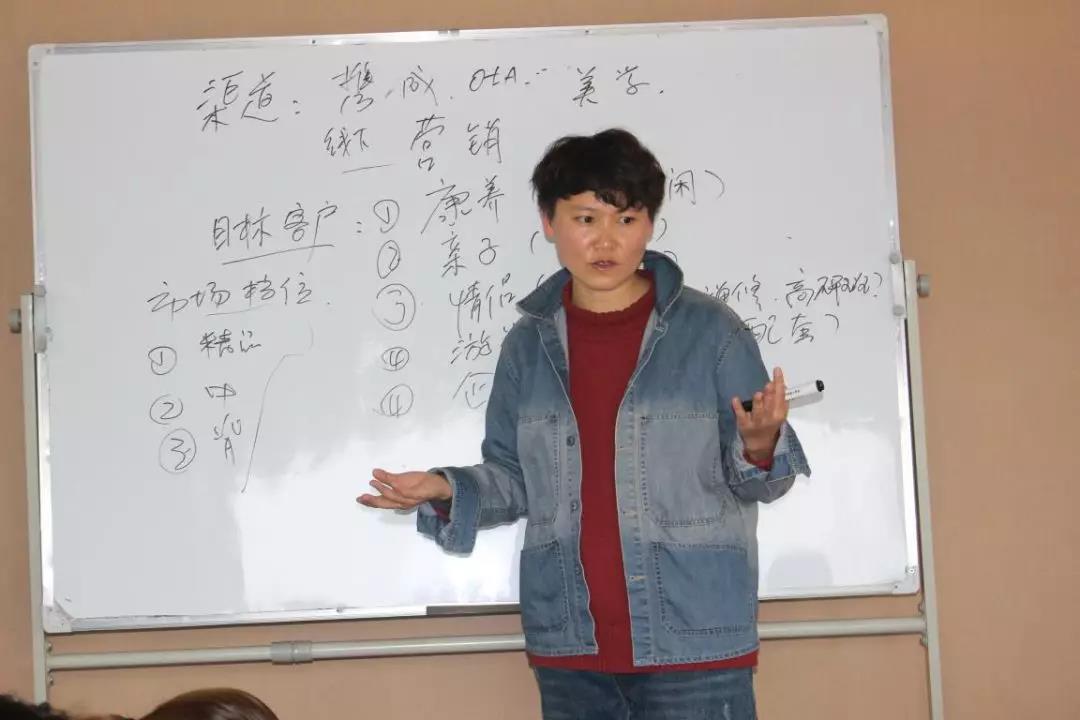 渠道: 携程. OtA. 美学.
线下 营销
目标客户: ① 康养 ( 闲 )
② 亲子 (
③ 情侣
④ 游
④ 企
配套 )
市场档位.
① 精品
② 中
③